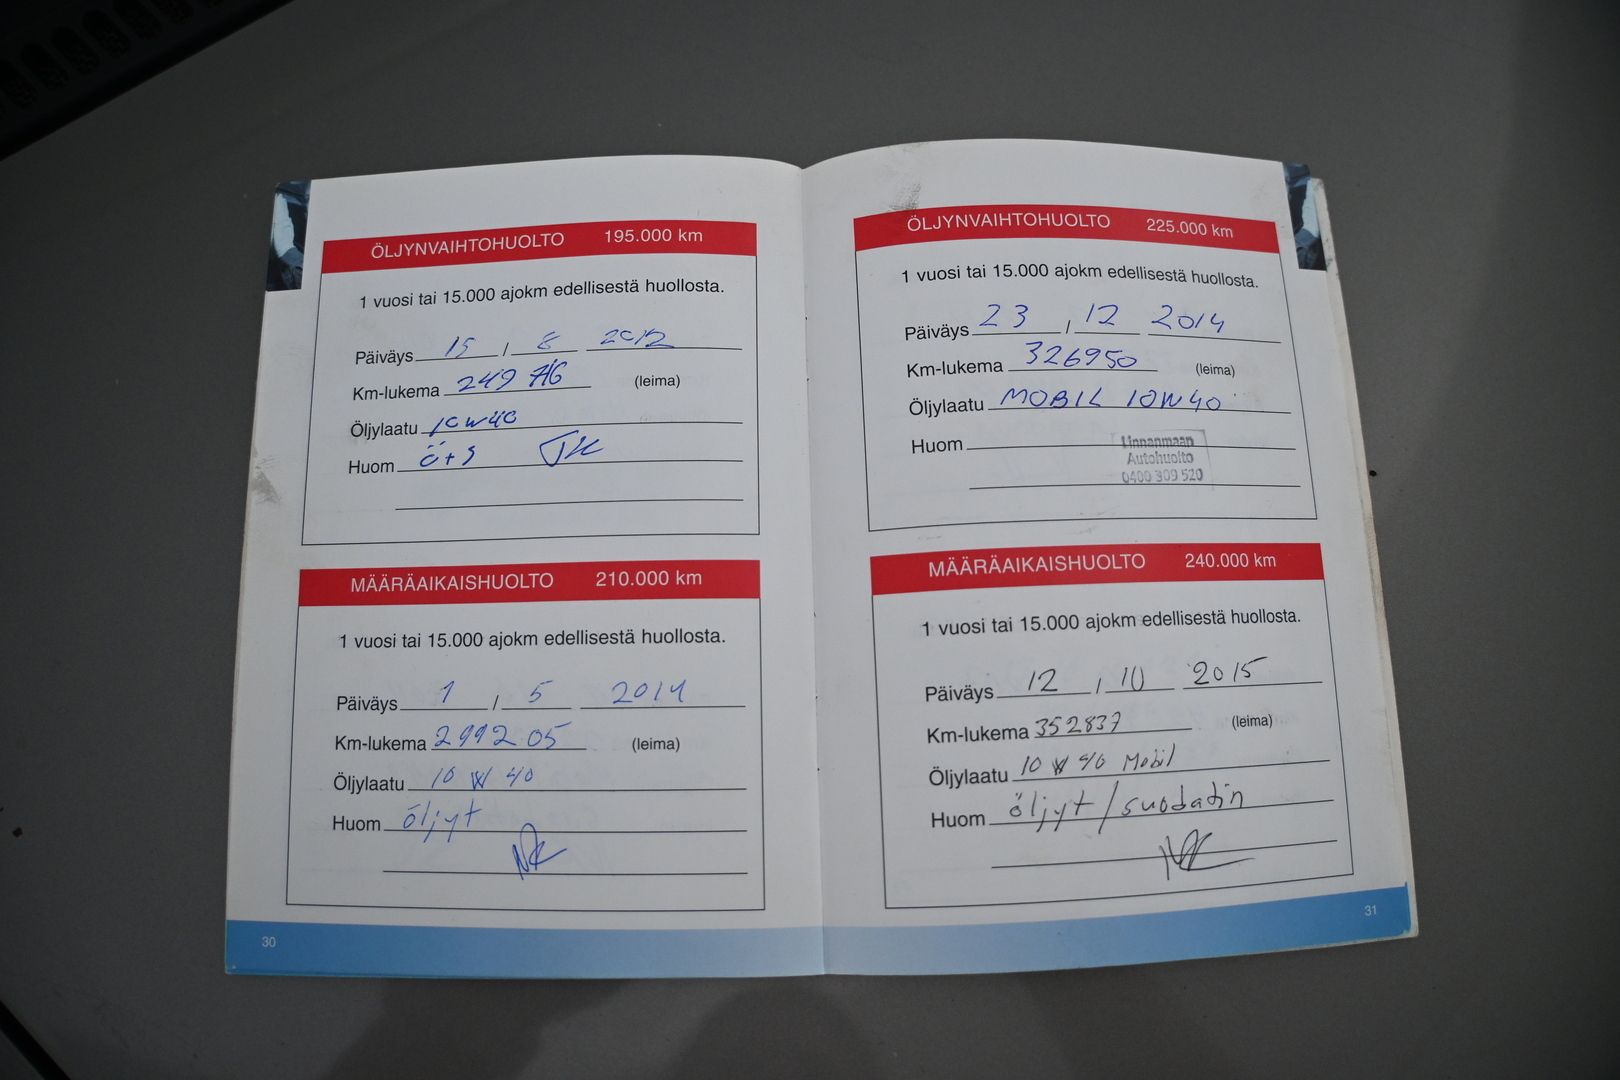 ÖLJYNVAIHTOHUOLTO 195.000 km
1 vuosi tai 15.000 ajokm edellisestä huollosta.
Päiväys 15 / 8 2012
Km-lukema 249 716 (leima)
Öljylaatu 10W40
Huom ö+s
MÄÄRÄAIKAISHUOLTO 210.000 km
1 vuosi tai 15.000 ajokm edellisestä huollosta.
Päiväys 1 / 5 2014
Km-lukema 299205 (leima)
Öljylaatu 10 W 40
Huom öljyt
30
ÖLJYNVAIHTOHUOLTO 225.000 km
1 vuosi tai 15.000 ajokm edellisestä huollosta.
Päiväys 23 / 12 2014
Km-lukema 326950 (leima)
Öljylaatu MOBIL 10W40
Huom
Linnanmaan
Autohuolto
0400 309 520
MÄÄRÄAIKAISHUOLTO 240.000 km
1 vuosi tai 15.000 ajokm edellisestä huollosta.
Päiväys 12 / 10 2015
Km-lukema 352837 (leima)
Öljylaatu 10 W 40 Mobil
Huom öljyt/suodatin
31